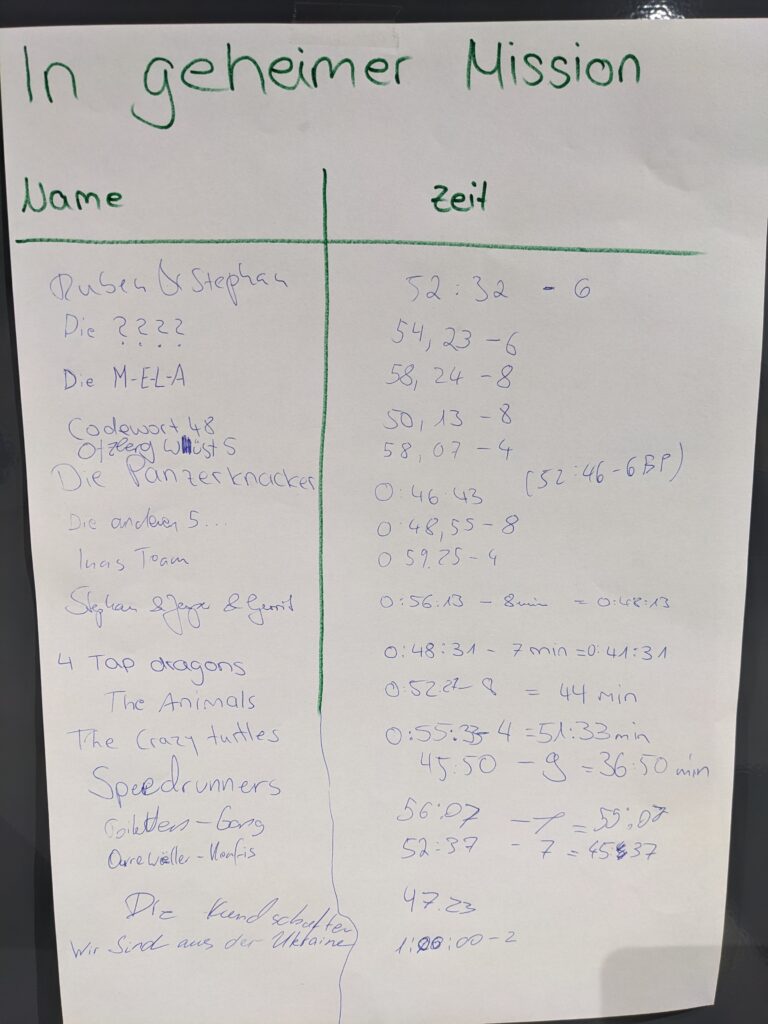 In geheimer Mission
Name Zeit
Ruben & Stephan 52:32 - 6
Die ???? 54,23 - 6
Die M-E-L-A 58,24 - 8
Codewort 48 50,13 - 8
Otzberg Wüst 5 58,07 - 4
Die Panzerknacker 0:46:43 (52:46 - 6 BP)
Die anderen 5... 0:48,55 - 8
Inas Team 0 59.25 - 4
Stephan & & Gerrit 0:56:13 - 8min = 0:48:13
4 Tap dragons 0:48:31 - 7 min = 0:41:31
The Animals 0:52:27 - 8 = 44 min
The Crazy turtles 0:55:33 - 4 = 51:33 min
Speedrunners 45:50 - 9 = 36:50 min
Gang 56:07 - 1 = 55:07
Konfis 52:37 - 7 = 45:37
Die Kundschafter 47.23
Wir Sind aus der Ukraine 1:00:00 - 2